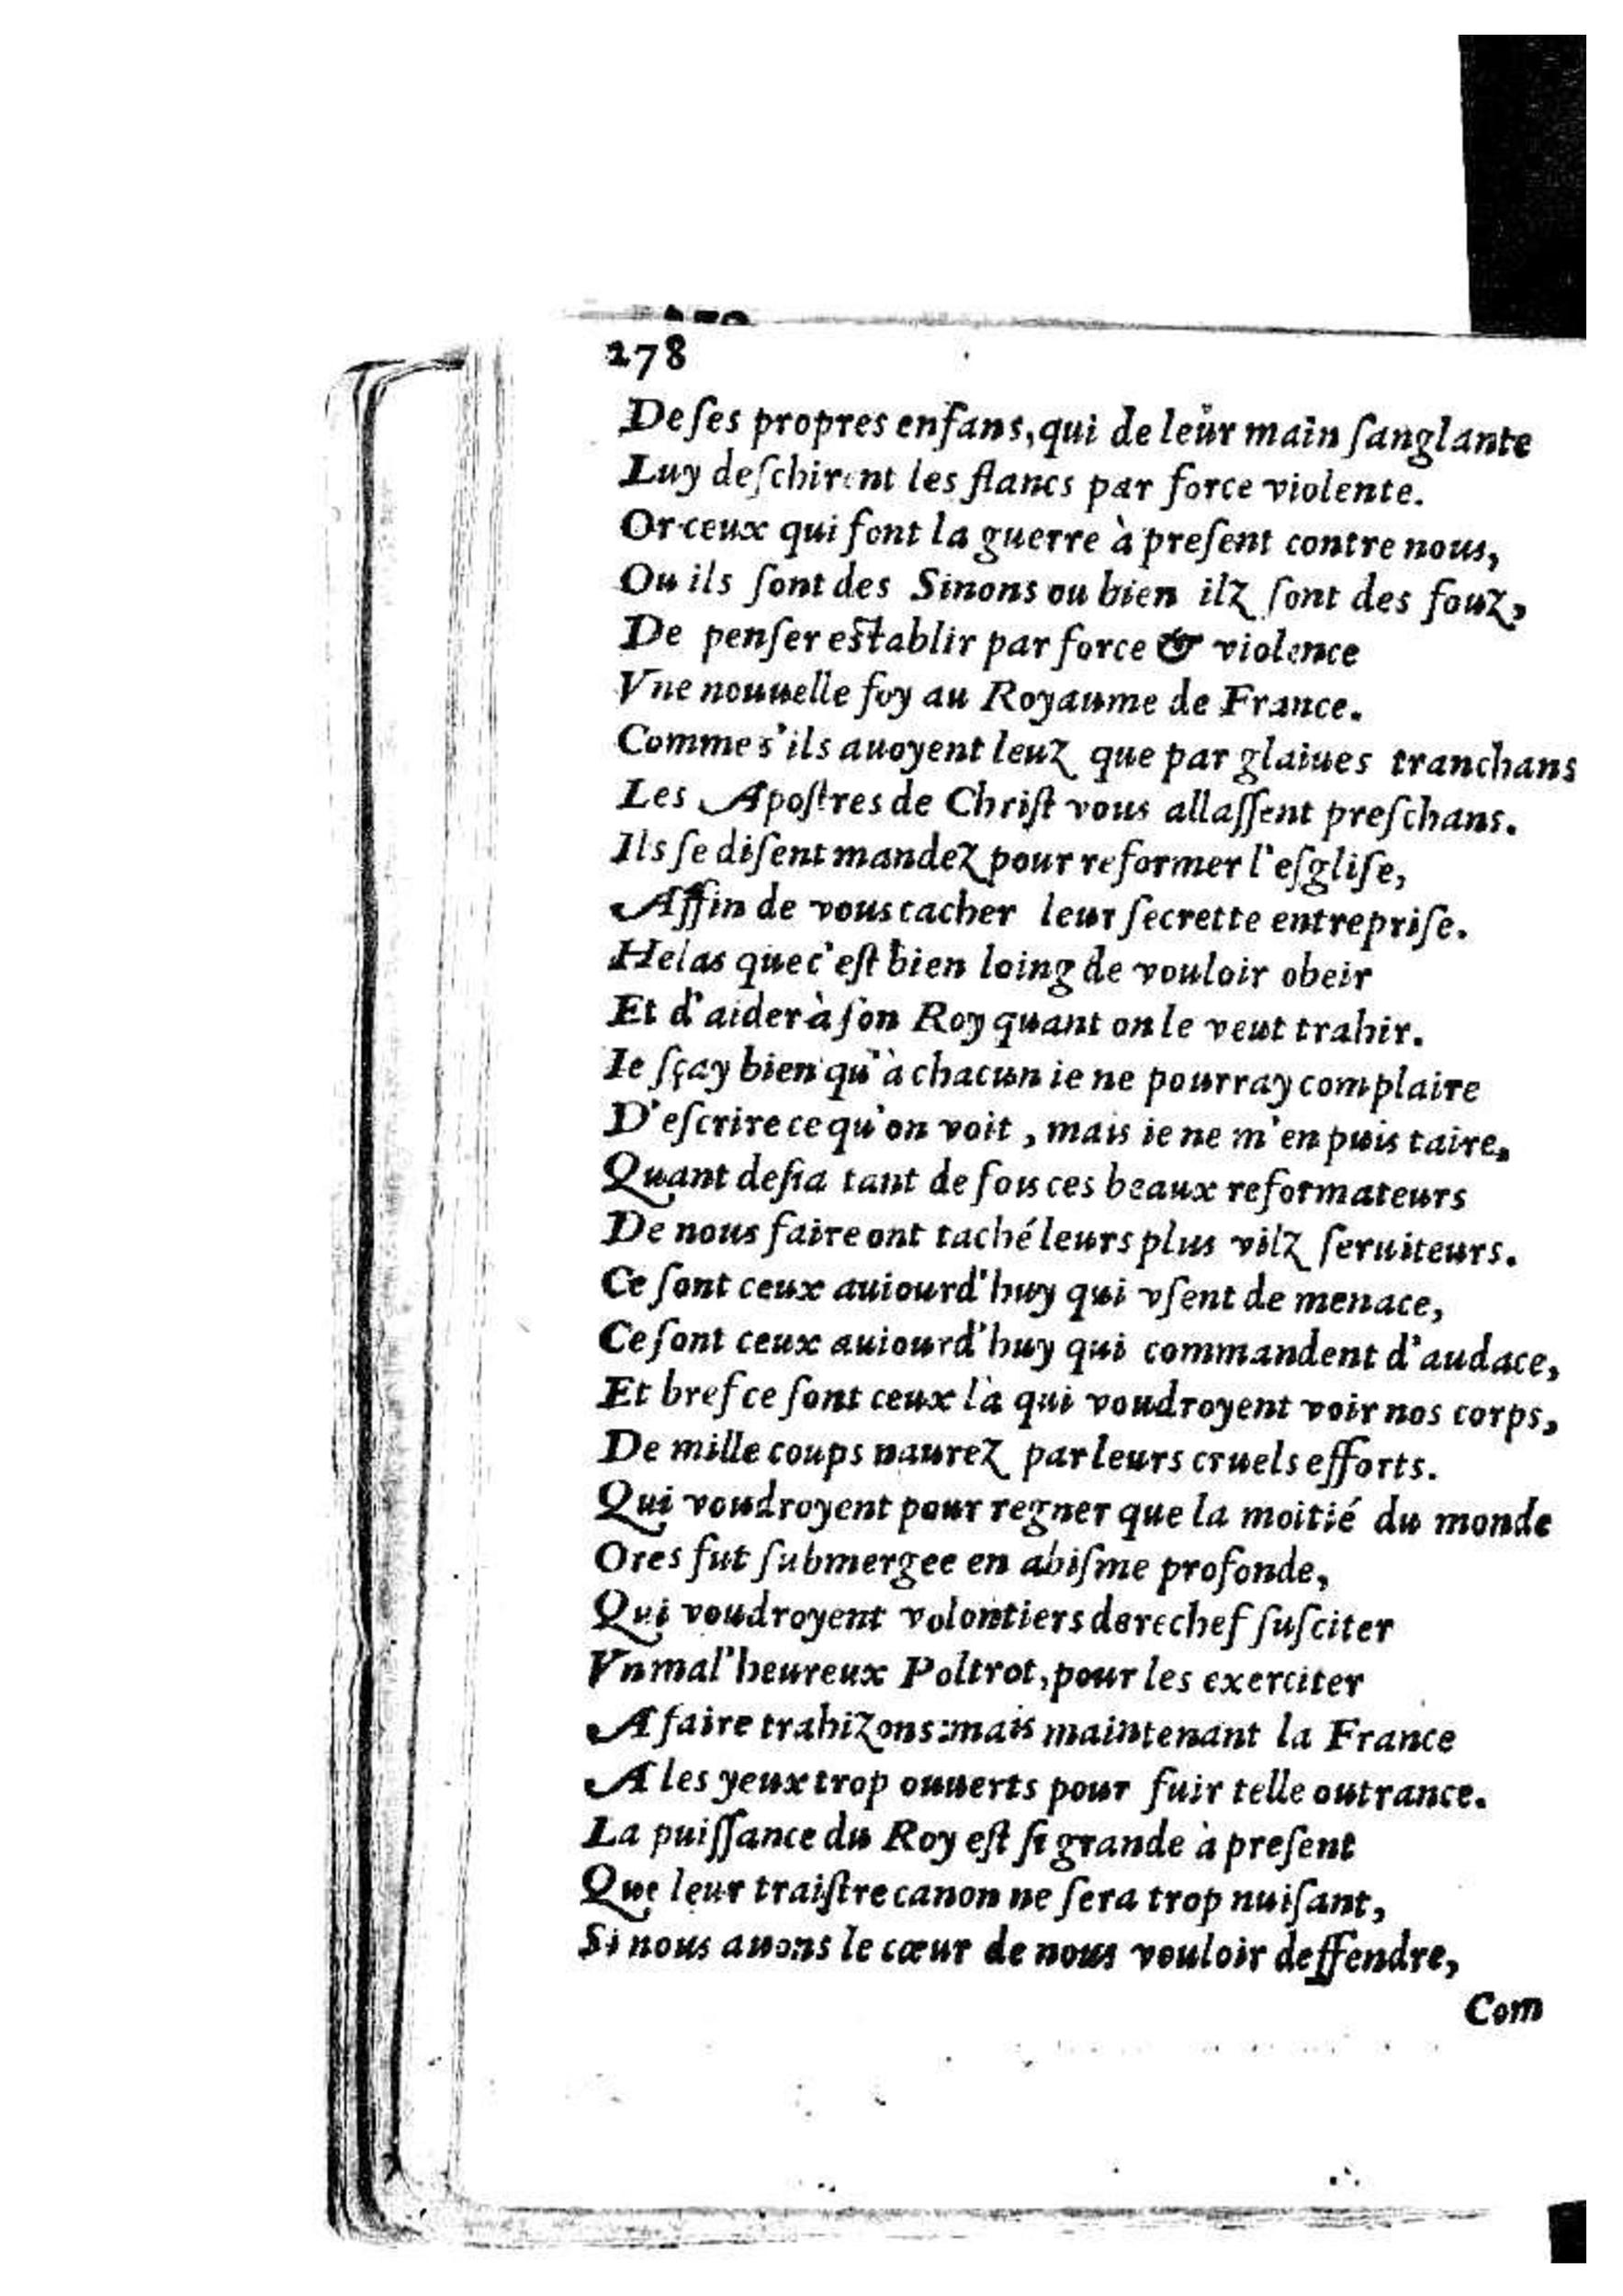 278
De ſes propres enfans, qui de leur main ſanglante
Luy deſchirent les flancs par force violente.
Or ceux qui font la guerre à preſent contre nous,
Ou ils ſont des Sinons ou bien ilz ſont des fouz,
De penſer eſtablir par force & violence
Vne nouuelle foy au Royaume de France.
Comme s'ils auoyent leuz que par glaiues tranchans
Les Apoſtres de Chriſt vous allaſſent preſchans.
Ils ſe diſent mandez pour reformer l'eſgliſe,
Affin de vous cacher leur ſecrette entrepriſe.
Helas que c'eſt bien loing de vouloir obeir
Et d'aider à ſon Roy quant on le veut trahir.
Ie ſçay bien qu'à chacun ie ne pourray complaire
D'eſcrire ce qu'on voit, mais ie ne m'en puis taire.
Quant deſia tant de fois ces beaux reformateurs
De nous faire ont taché leurs plus vilz ſeruiteurs.
Ce ſont ceux auiourd'huy qui vſent de menace,
Ce ſont ceux auiourd'huy qui commandent d'audace,
Et bref ce ſont ceux là qui voudroyent voir nos corps,
De mille coups naurez par leurs cruels efforts.
Qui voudroyent pour regner que la moitié du monde
Ores fut ſubmergee en abiſme profonde,
Qui voudroyent volontiers derechef ſuſciter
Vn mal'heureux Poltrot, pour les exerciter
A faire trahizons: mais maintenant la France
A les yeux trop ouuerts pour fuir telle outrance.
La puiſſance du Roy eſt ſi grande à preſent
Que leur traiſtre canon ne ſera trop nuiſant,
Si nous auons le cœur de nous vouloir deffendre,
Com